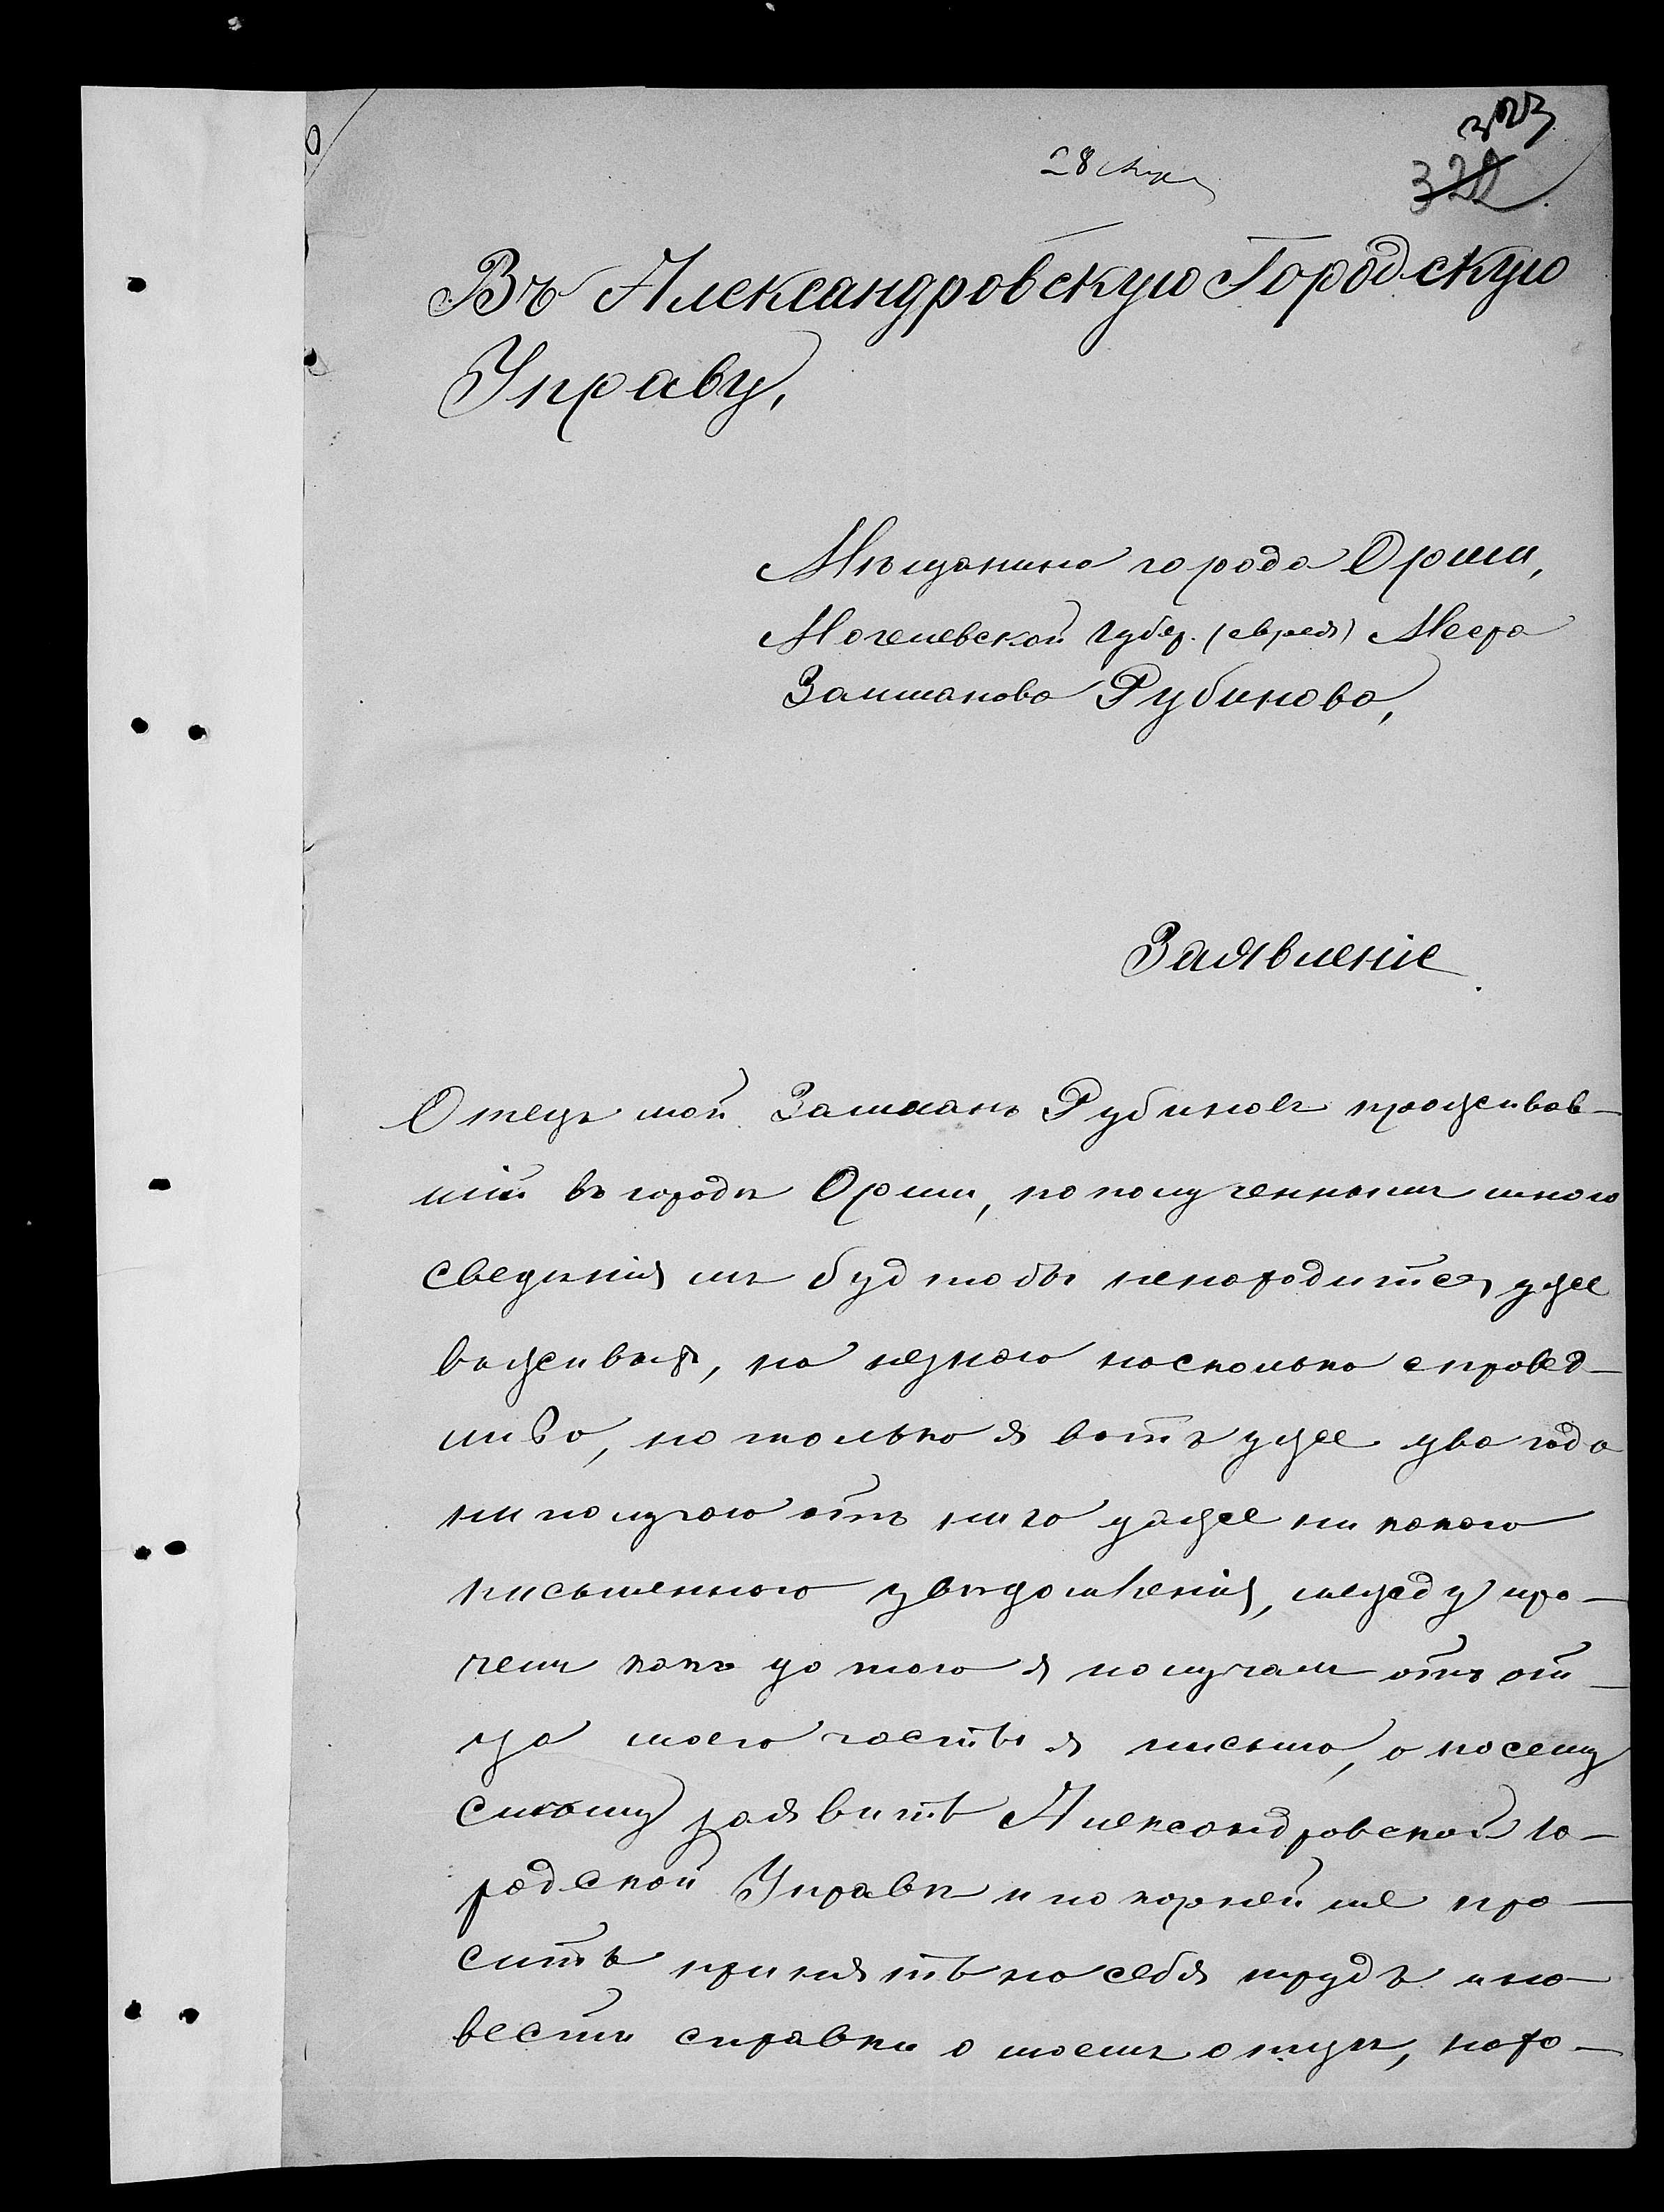 323
322
28
Въ Александровскую Городскую
Управу,
Мѣщанина города Орши,
Могелевской Губер. (еврея) Меера
Залманова Рубинова,
Заявленіе.
Отецъ мой Залманъ Рубиновъ проживав-
шій въ городѣ Орши, по полученнымъ мною
сведѣніямъ будтобы ненаходится уже
въ живыхъ, но незнаю насколько справед-
ливо, но только я вотъ уже два года
ни получаю отъ него даже ни какого
письменнаго увѣдомленія, между про-
чемъ какъ до того я получалъ отъ от-
ца моего часты я письма, а посему
симъ заявить Александровской Го-
родской Управѣ и покорнейше про-
сить принять на себя трудъ и на-
вести справки о моемъ отцѣ, нахо-